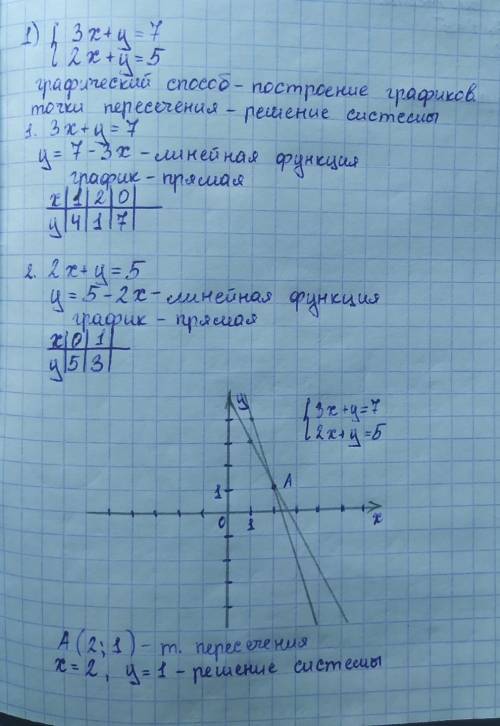 1) { 3x+y=7
2x+y=5
графический способ - построение графиков.
точки пересечения - решение системы
1. 3x+y=7
y=7-3x - линейная функция
график - прямая
x|1|2|0
y|4|1|7
2. 2x+y=5
y=5-2x - линейная функция
график - прямая
x|0|1|
y|5|3|
y
{ 3x+y=7
2x+y=5
1 A
0 1 x
A(2;1) - т. пересечения
x=2, y=1 - решение системы